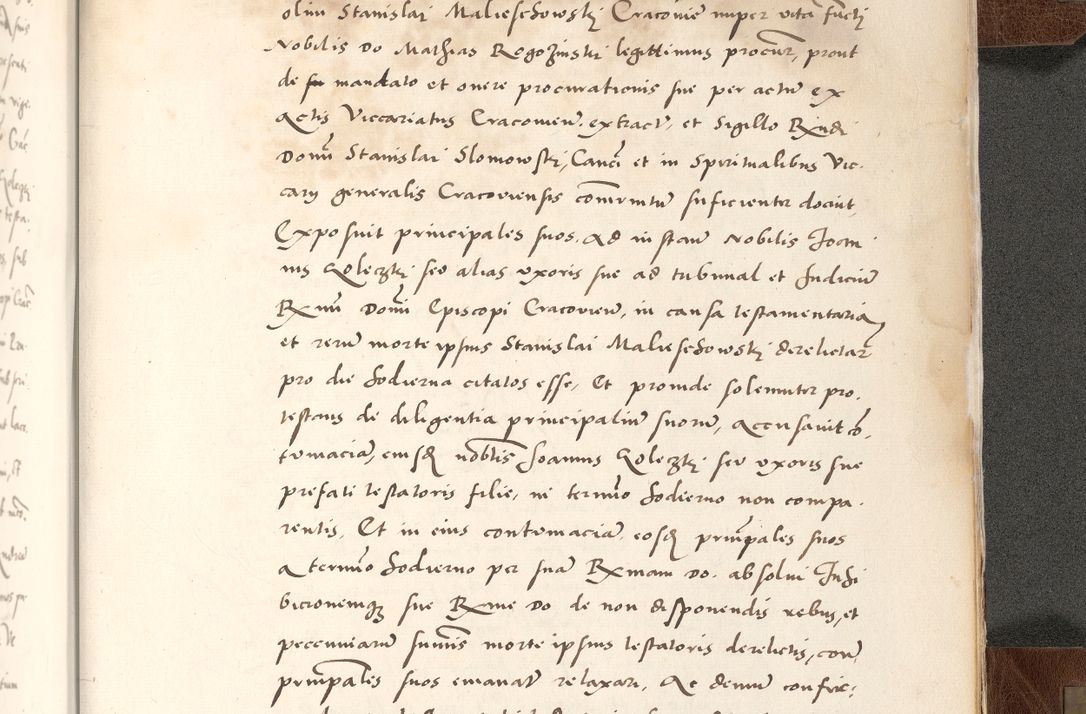 olim Stanislai Malieschowskj Cracovie nuper vita functj
Nobilis Do Mathias Rogozinskj legittimus procur, prout
de mandato et onere procurationis sue per actum ex
Actis Viccariatus Cracovien. extract, et Sigillo Rndi
Domi Stanislai Slomowskj, Canci et in Spiritualibus Vic.
carij generalis Cracoviensis commnitum sufficienter docuit,
Exposuit principales suos, Ad instan Nobilis Joan
nis Goleczkj seo alias uxoris sue ad tribunal et Judicium
Rmi Domi Episcopi Cracovien, in causa testamentaria
et rerum morte ipsius Stanislai Malieschowskj derelictar
pro die hodierna citatos esse, Et proinde solemniter pro.
testans de diligentia principalium suorum, Accusavit co,
tumaciam, eiusd nobilis Joannis Goleczkj seo uxoris sue
prefati testatoris filie, in termino hodierno non compa.
rentis, Et in eius contumaciam, eosd principales suos
a termino hodierno per suam Rmam Do. absolvi Inhi
bicionemq sue Rme Do de non disponendis rebus, et
peccuniarum summis morte ipsius testatoris derelictis, coram
principales suos emanat relaxari, Ac demum confir: